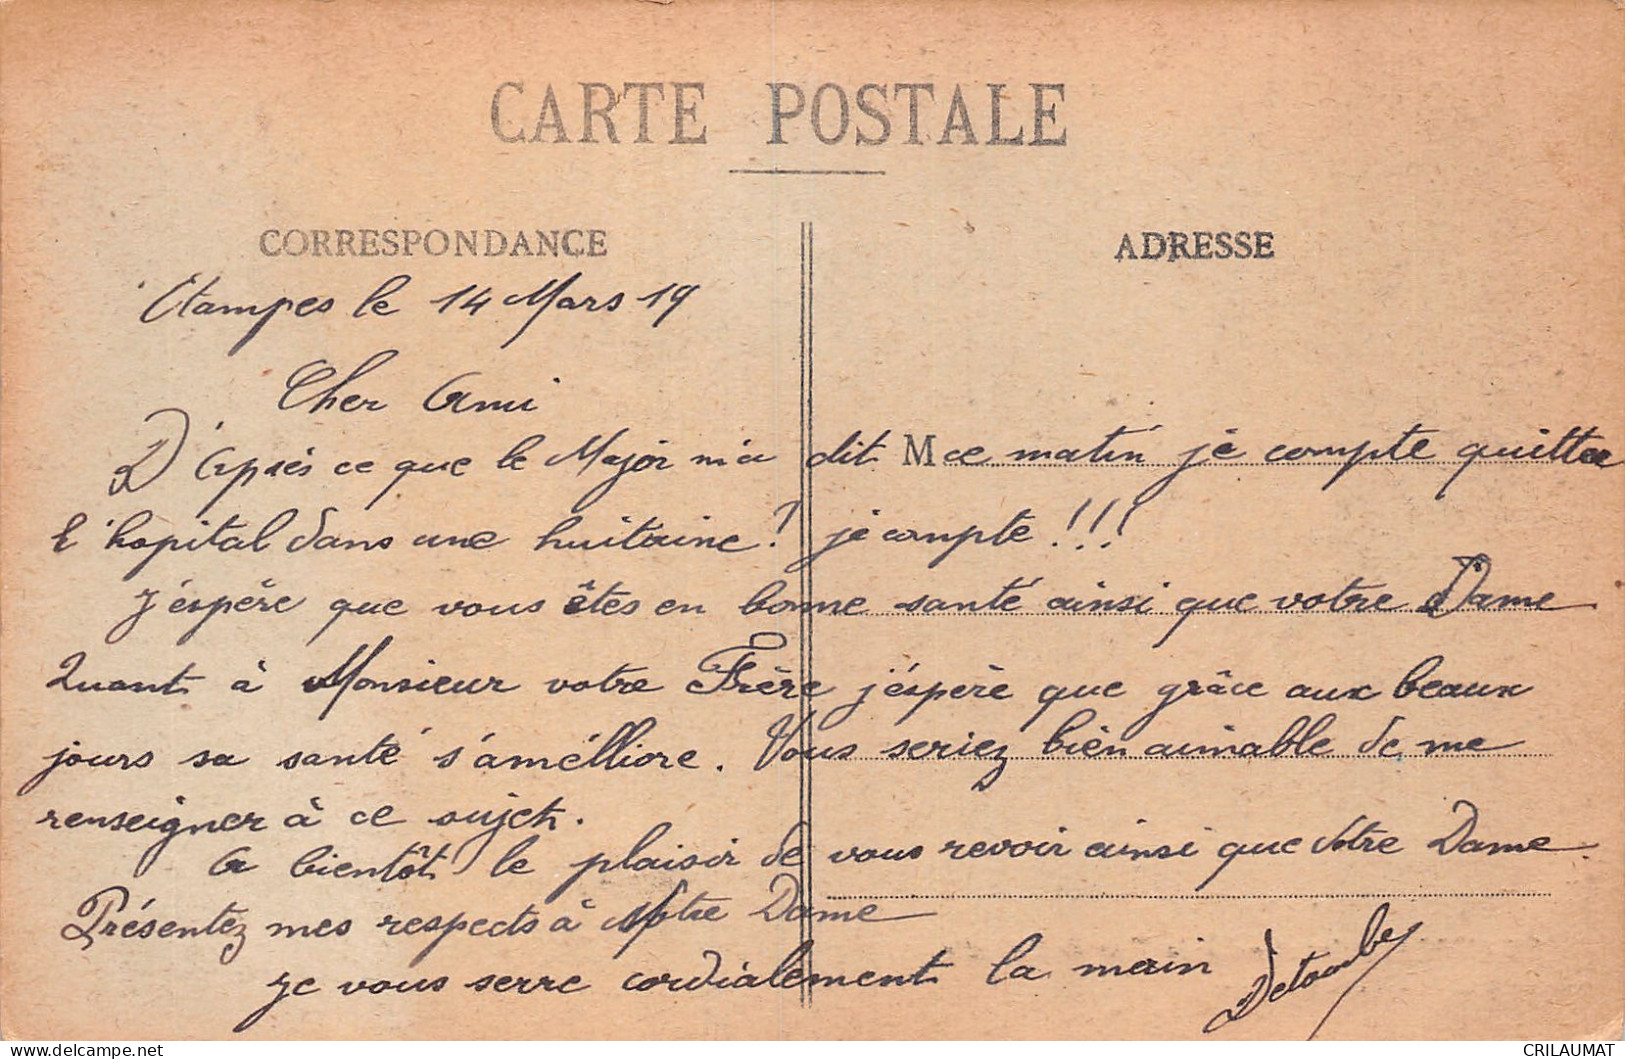 CARTE POSTALE
CORRESPONDANCE
ADRESSE
Etampes le 14 Mars 19
Cher Ami
D'après ce que le Major m'a dit M ce matin je compte quitter
l'hopital dans une huitaine! je compte!!!
J'éspère que vous êtes en bonne santé ainsi que votre Dame
Quant à Monsieur votre Frère j'éspère que grâce aux beaux
jours sa santé s'amélliore. Vous seriez bien aimable de me
renseigner à ce sujet.
A bientôt le plaisir de vous revoir ainsi que Votre Dame.
Présentez mes respects à Votre Dame
Je vous serre cordialement la main
CRILAUMAT